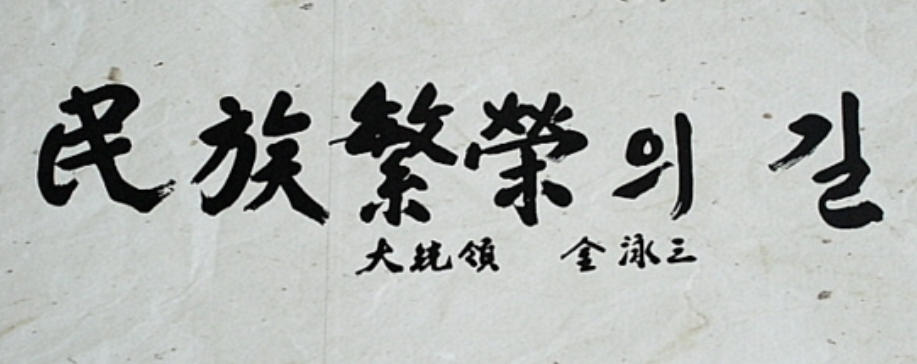 民族繁榮의 길
大統領 金泳三